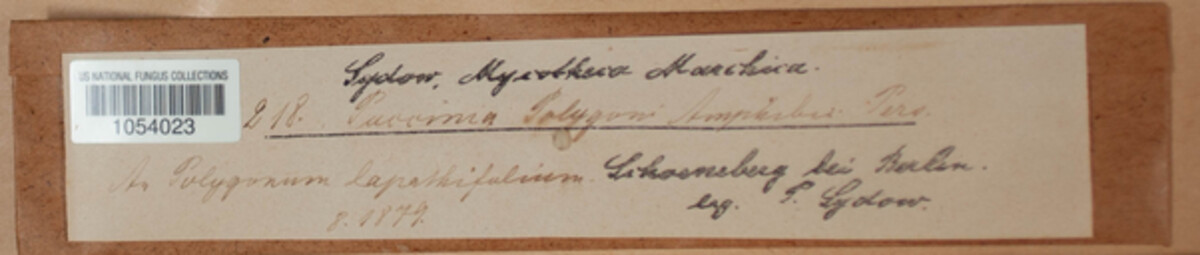 Sydow, Mycotheca Marchica.
US NATIONAL FUNGUS COLLECTIONS
1054023
218. Puccinia Polygoni Amphibii Pers.
An Polygonum lapathifolium. Schoeneberg bei Berlin.
8. 1879. leg. P. Sydow.